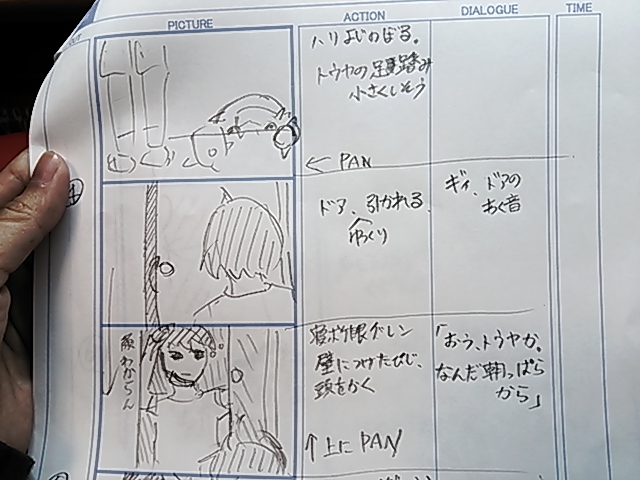 PICTURE
ACTION
DIALOGUE
TIME
ハリよじのぼる。
トウヤの足踏み
小さくしそう
← PAN
ドア、引かれる
ゆっくり
ギィ、ドアの
あく音
寝ボケ眼グレン
壁につけたひじ、
頭をかく
↑上にPAN
「おう、トウヤか。
なんだ朝っぱら
から」
わからん